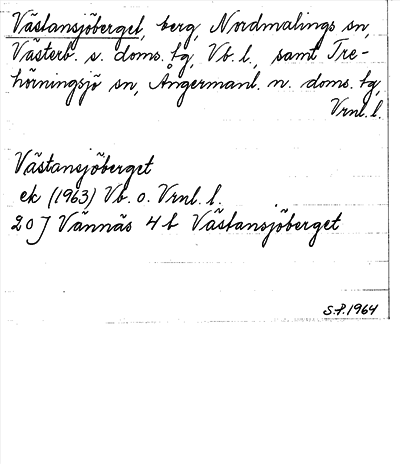 Västansjöberget, berg, Nordmalings sn,
Västerb. s. doms. tg, Vb. l., samt Tre-
hörningsjö sn, Ångermanl. n. doms. tg,
Vrnl. l.
Västansjöberget
ek (1963) Vb. o. Vrnl. l.
20 J Vännäs 4 b Västansjöberget
S.P. 1964